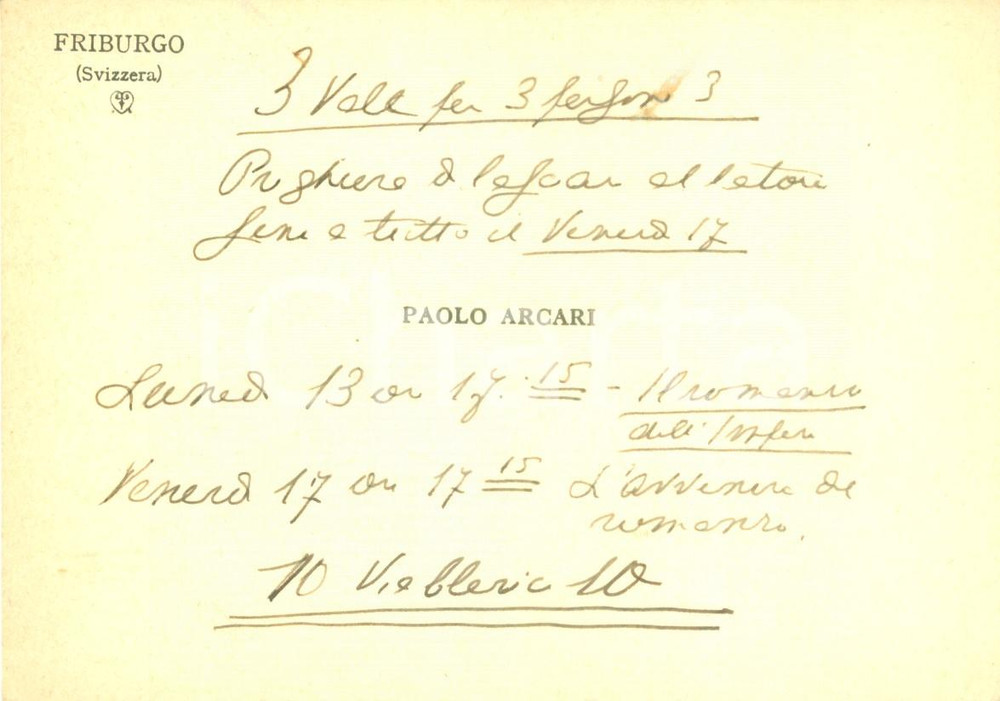 FRIBURGO
(Svizzera)
3 Vale per 3 persone 3
Preghiera di lasciar al latore
fino a tutto il Venerdì 17
PAOLO ARCARI
Lunedì 13 ore 17.15 - Il romanzo
dell'Impero
Venerdì 17 ore 17 15 L'avvenire del
romanzo.
10 Via Clerici 10
iCharta